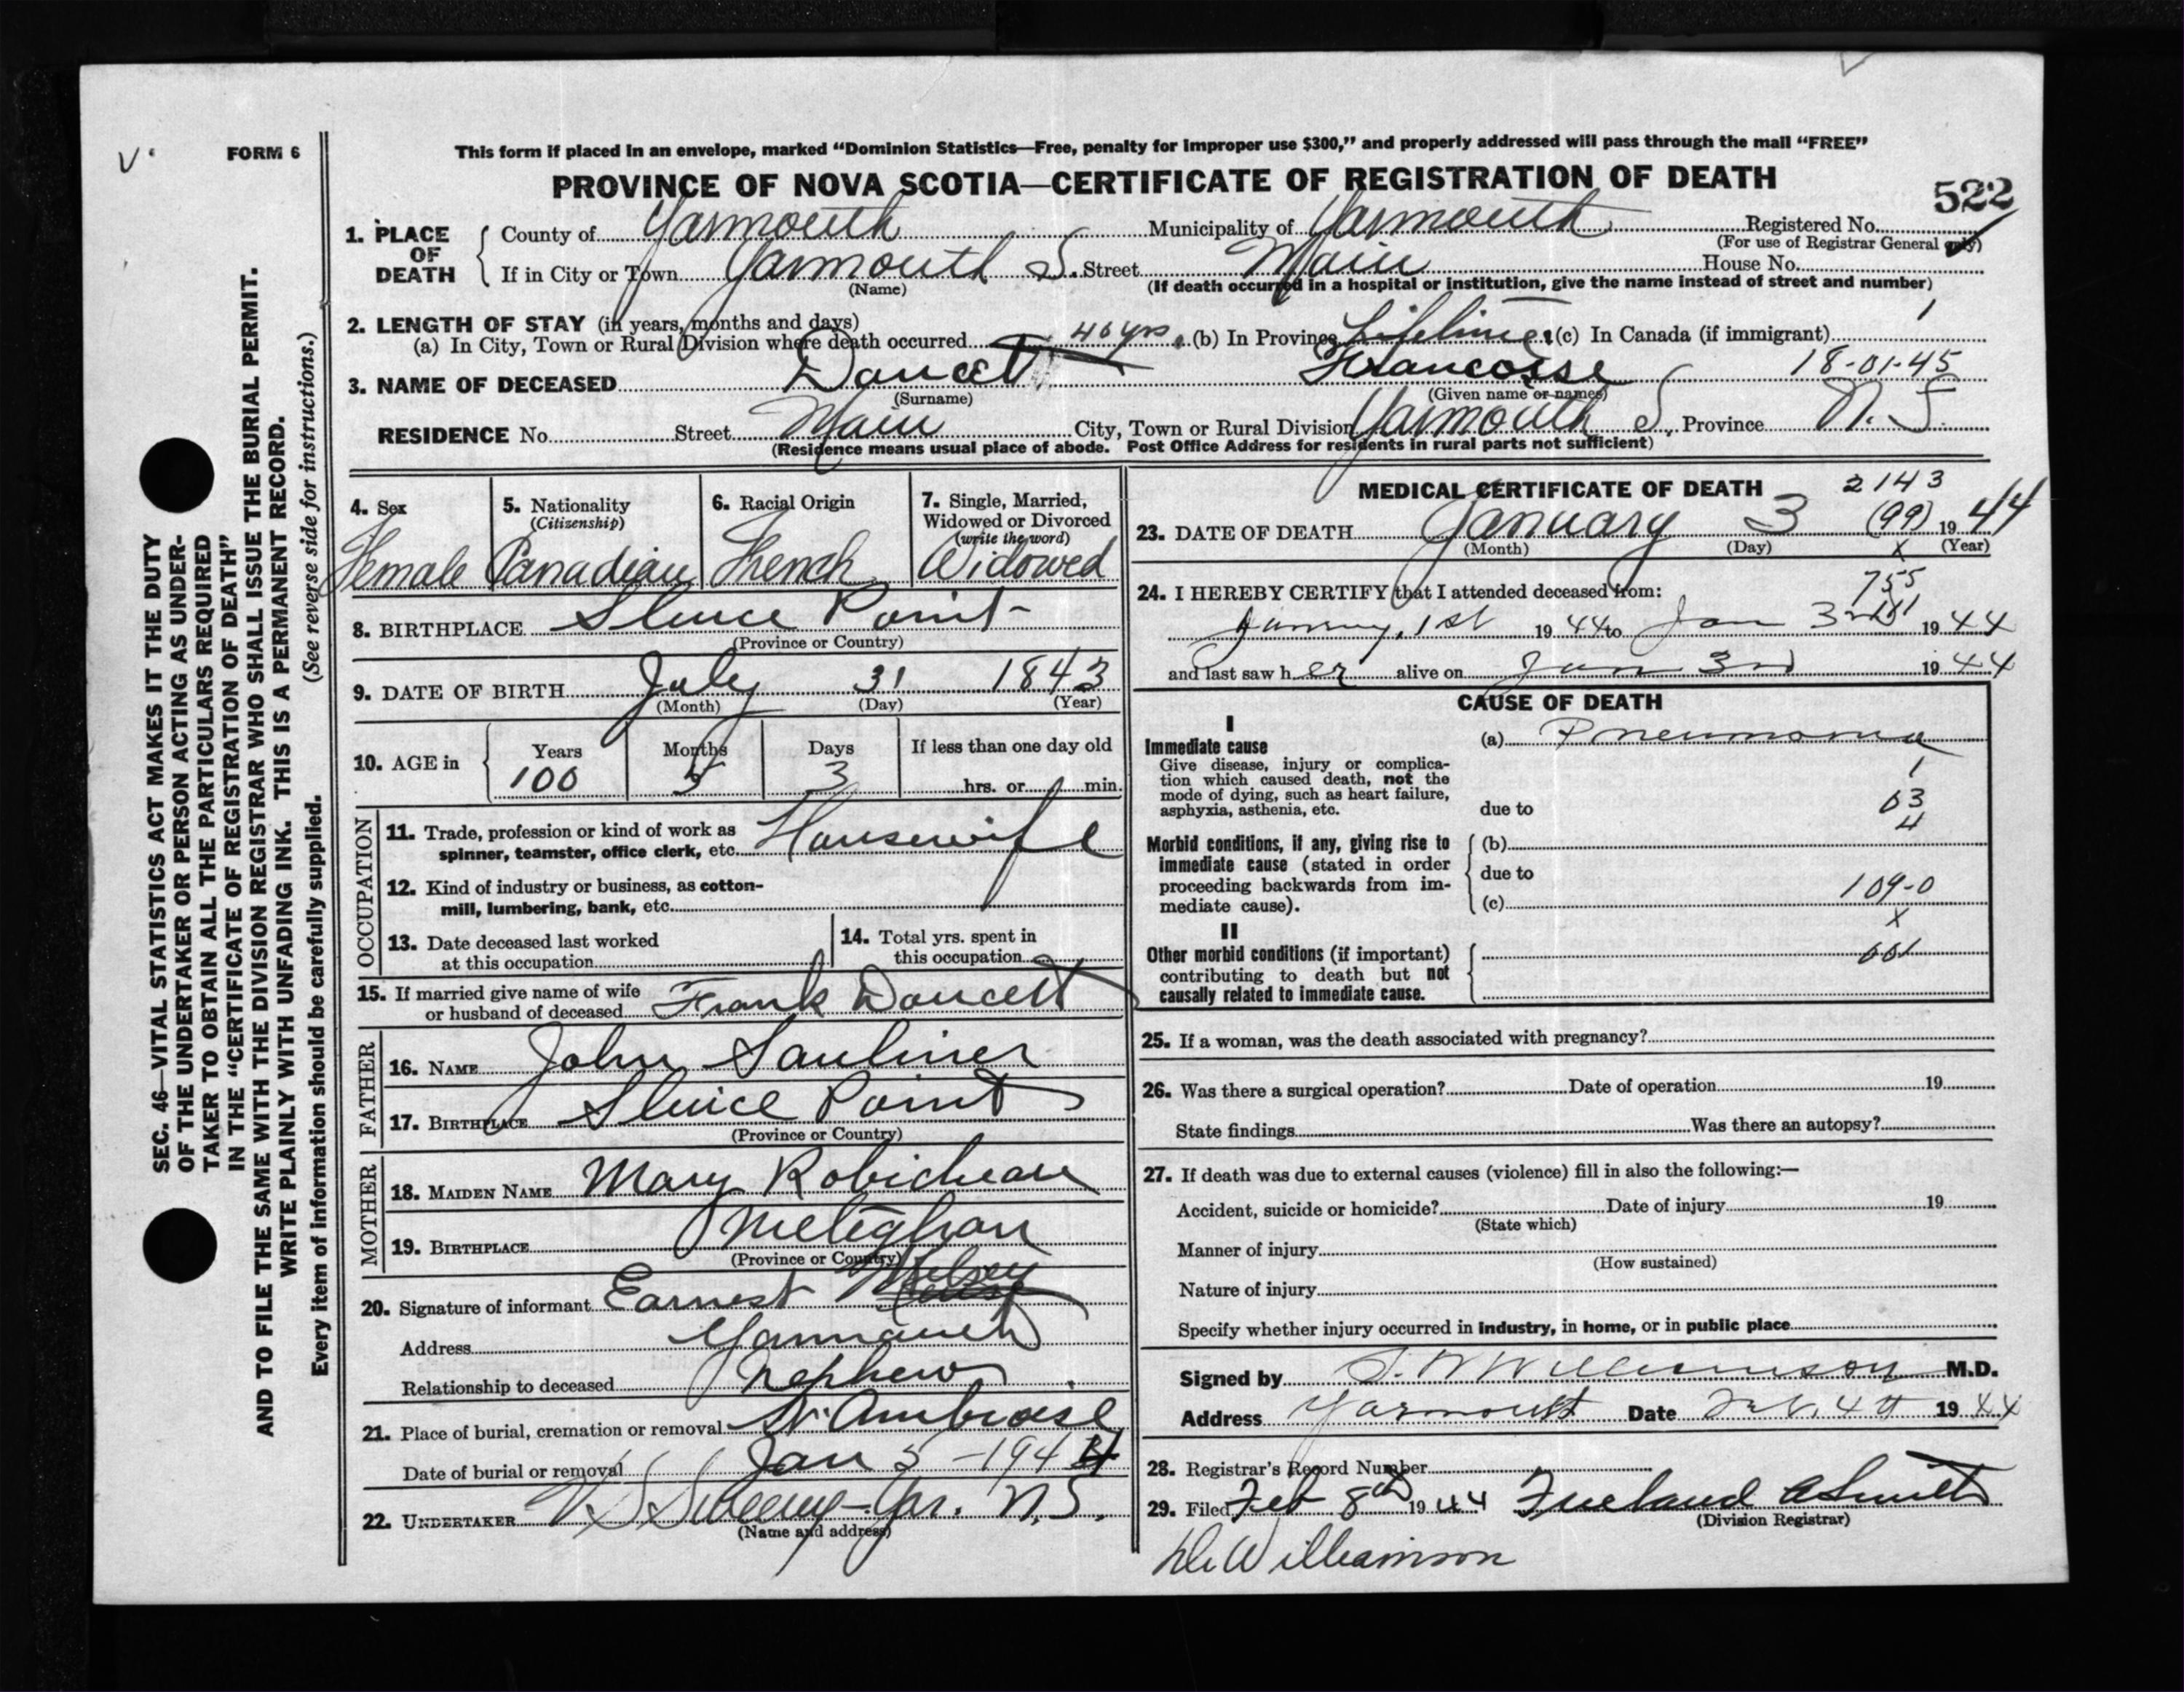 V.
FORM 6
This form if placed in an envelope, marked "Dominion Statistics—Free, penalty for improper use $300," and properly addressed will pass through the mail "FREE"
PROVINCE OF NOVA SCOTIA—CERTIFICATE OF REGISTRATION OF DEATH
522
1. PLACE OF DEATH County of Yarmouth Municipality of Yarmouth Registered No.
(For use of Registrar General only)
If in City or Town Yarmouth S. Street Main House No.
(Name) (If death occurred in a hospital or institution, give the name instead of street and number)
2. LENGTH OF STAY (in years, months and days)
(a) In City, Town or Rural Division where death occurred 40 yrs. (b) In Province Lifetime (c) In Canada (if immigrant)
18-01-45
3. NAME OF DECEASED Doucett Francosse
(Surname) (Given name or names)
RESIDENCE No. Street Main City, Town or Rural Division Yarmouth S. Province N.S.
(Residence means usual place of abode. Post Office Address for residents in rural parts not sufficient)
4. Sex 5. Nationality 6. Racial Origin 7. Single, Married,
(Citizenship) Widowed or Divorced
(write the word)
Female Canadian French Widowed
8. BIRTHPLACE Sluice Point
(Province or Country)
9. DATE OF BIRTH July 31 1843
(Month) (Day) (Year)
10. AGE in Years Months Days If less than one day old
100 5 3 hrs. or min.
OCCUPATION
11. Trade, profession or kind of work as
spinner, teamster, office clerk, etc. Housewife
12. Kind of industry or business, as cotton-
mill, lumbering, bank, etc.
13. Date deceased last worked
at this occupation
14. Total yrs. spent in
this occupation
15. If married give name of wife
or husband of deceased Frank Doucett
FATHER
16. NAME John Saulnier
17. BIRTHPLACE Sluice Point
(Province or Country)
MOTHER
18. MAIDEN NAME Mary Robicheau
19. BIRTHPLACE Meteghan
(Province or Country)
20. Signature of informant Earnest
Address Yarmouth
Relationship to deceased Nephew
21. Place of burial, cremation or removal St. Ambroise
Date of burial or removal Jan 5 - 1944
22. UNDERTAKER V S Sweeny - Yar. N.S.
(Name and address)
MEDICAL CERTIFICATE OF DEATH
2143
23. DATE OF DEATH January 3 (99) 1944
(Month) (Day) X (Year)
755
24. I HEREBY CERTIFY that I attended deceased from:
January, 1st 1944 to Jan 3rd 1944
and last saw her alive on Jan 3rd 1944
CAUSE OF DEATH
I
Immediate cause (a) Pneumonia
Give disease, injury or complica-
tion which caused death, not the
mode of dying, such as heart failure,
asphyxia, asthenia, etc. due to
1
63
4
Morbid conditions, if any, giving rise to (b)
immediate cause (stated in order
proceeding backwards from im- due to
mediate cause). (c)
109-0
X
II
Other morbid conditions (if important)
contributing to death but not
causally related to immediate cause.
661
25. If a woman, was the death associated with pregnancy?
26. Was there a surgical operation? Date of operation 19
State findings Was there an autopsy?
27. If death was due to external causes (violence) fill in also the following:—
Accident, suicide or homicide? Date of injury 19
(State which)
Manner of injury
(How sustained)
Nature of injury
Specify whether injury occurred in industry, in home, or in public place
Signed by S. W Williamson M.D.
Address Yarmouth Date Feb. 4th 1944
28. Registrar's Record Number
29. Filed Feb 8th 1944 Freeland A Smith
(Division Registrar)
Dr Williamson
SEC. 46—VITAL STATISTICS ACT MAKES IT THE DUTY
OF THE UNDERTAKER OR PERSON ACTING AS UNDER-
TAKER TO OBTAIN ALL THE PARTICULARS REQUIRED
IN THE "CERTIFICATE OF REGISTRATION OF DEATH"
AND TO FILE THE SAME WITH THE DIVISION REGISTRAR WHO SHALL ISSUE THE BURIAL PERMIT.
WRITE PLAINLY WITH UNFADING INK. THIS IS A PERMANENT RECORD.
Every item of information should be carefully supplied. (See reverse side for instructions.)